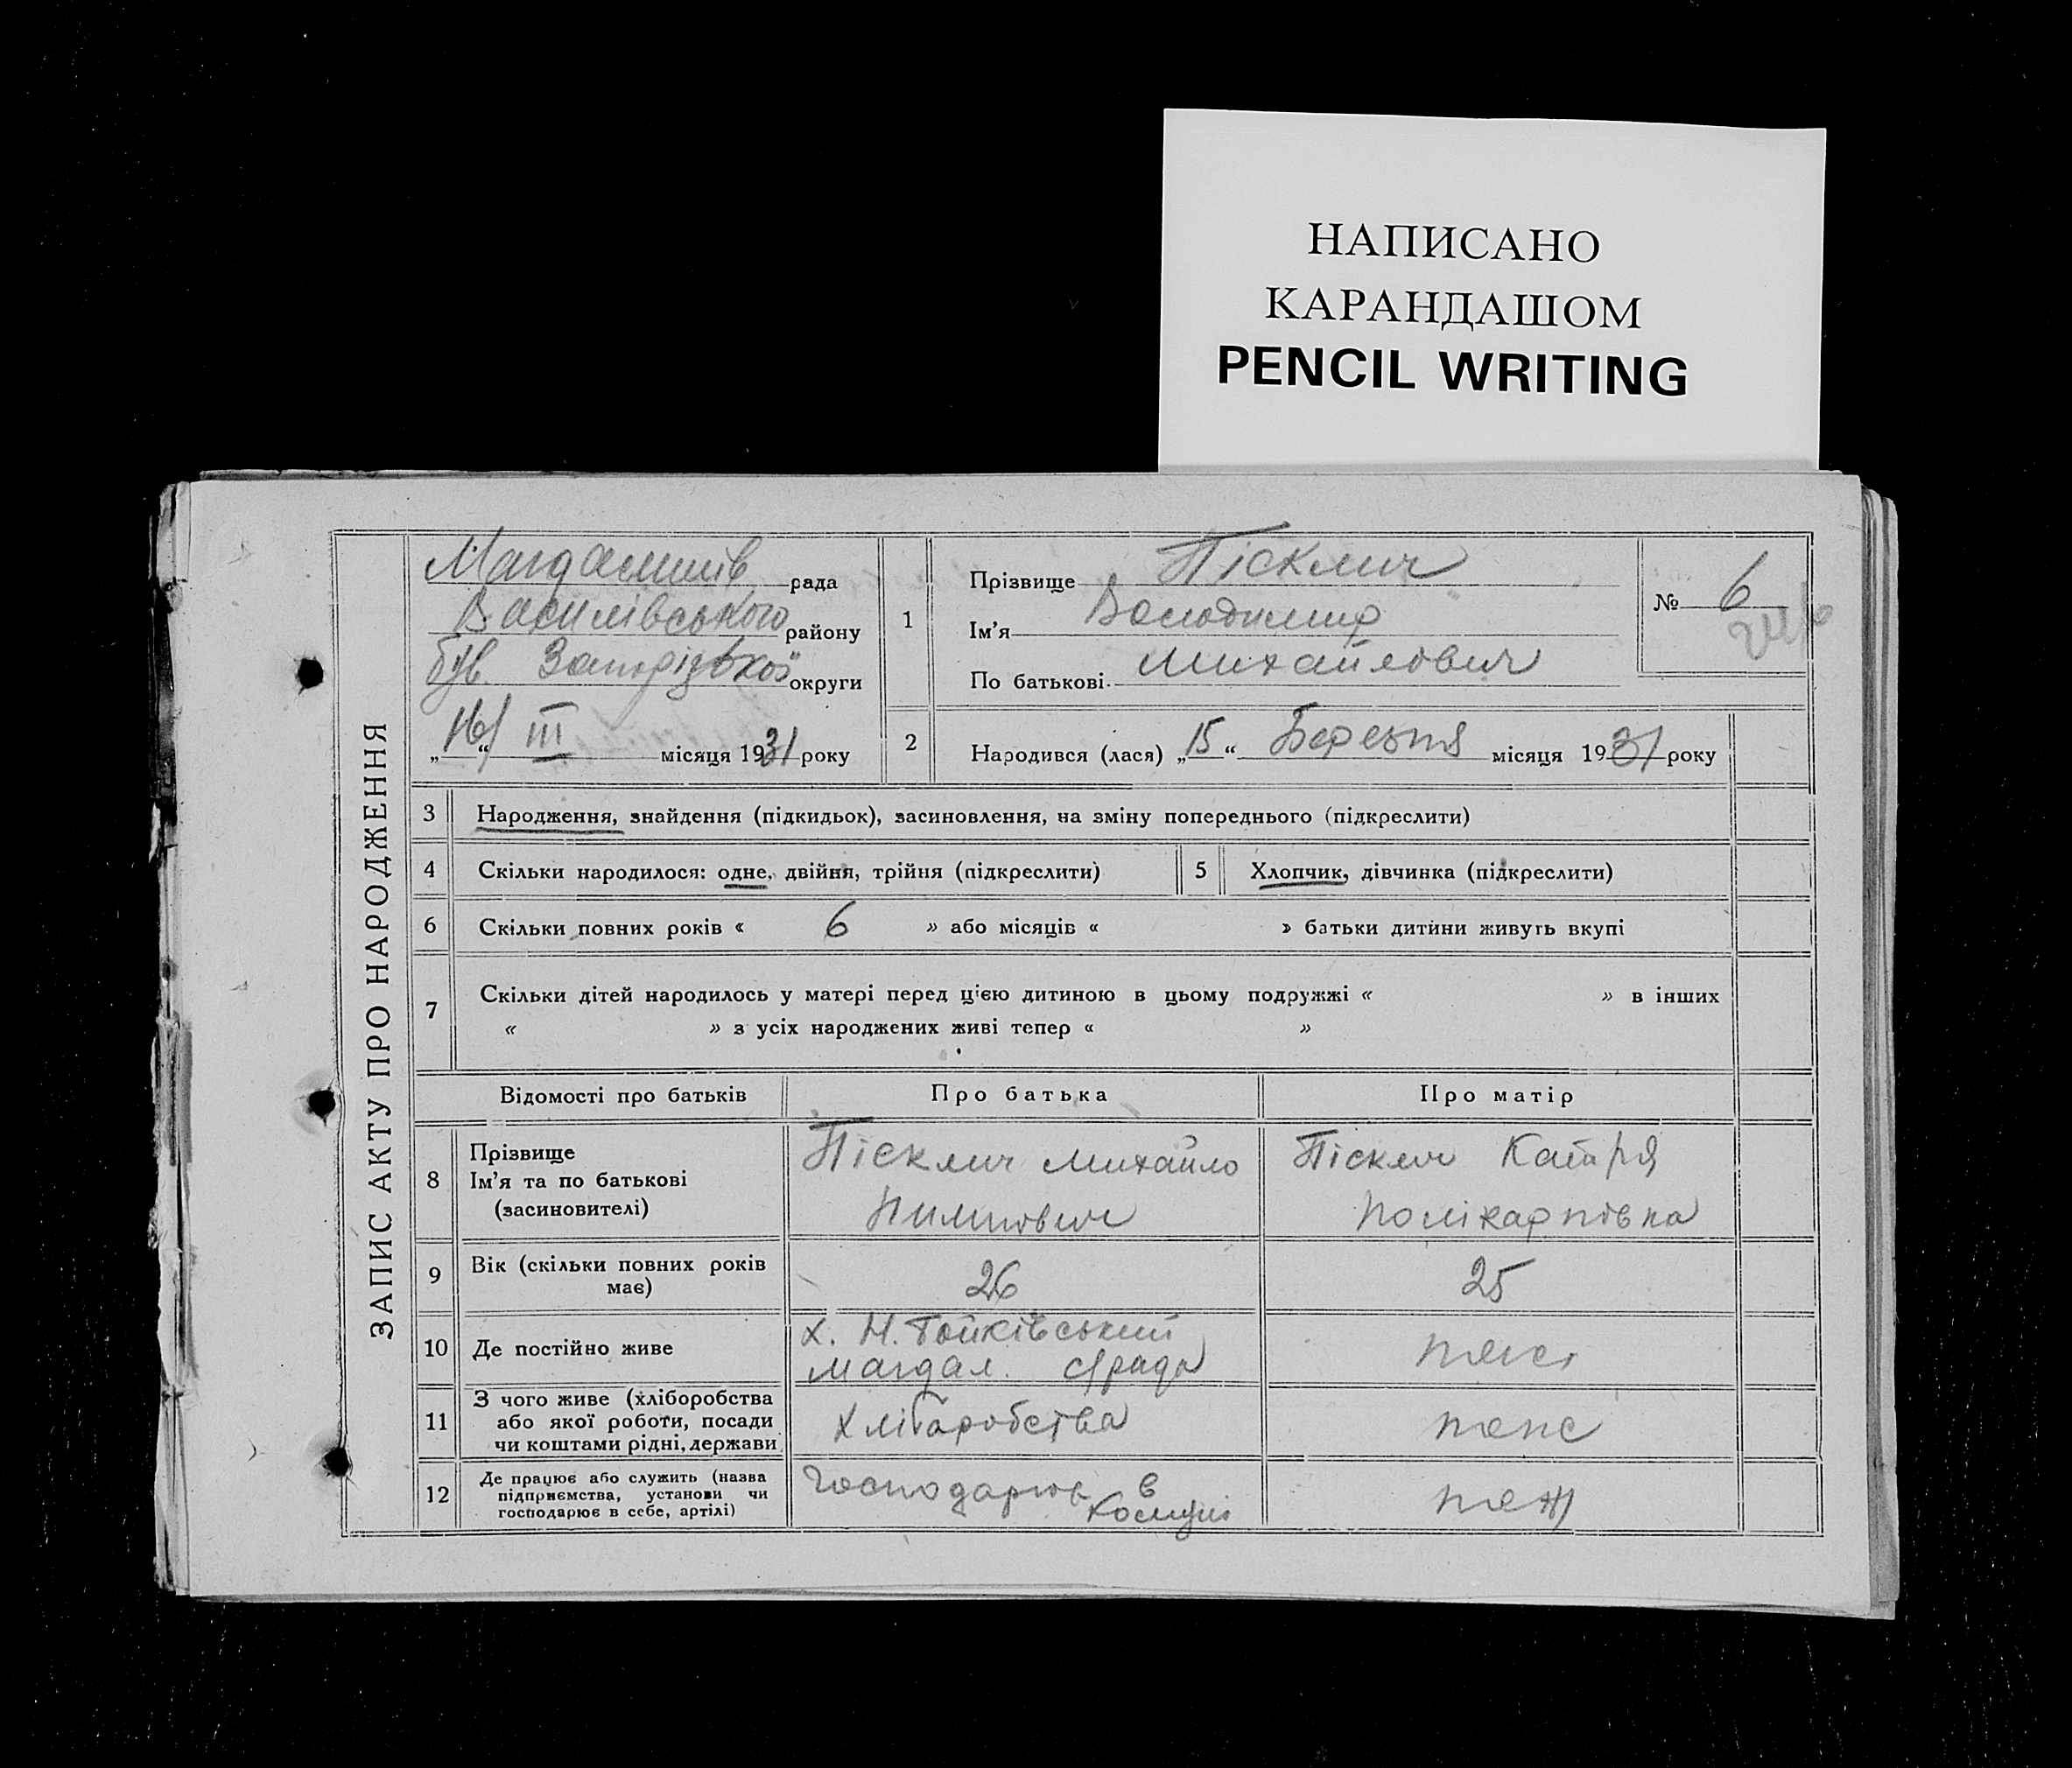 НАПИСАНО
КАРАНДАШОМ
PENCIL WRITING
ЗАПИС АКТУ ПРО НАРОДЖЕННЯ
рада
Василівського району
був. Запорізької округи
„16“ III місяця 1931 року
1
Прізвище Піскмич
Ім'я Володимир
По батькові Михайлович
№ 6
2
Народився (лася) „15“ Березня місяця 1931 року
3 Народження, знайдення (підкидьок), засиновлення, на зміну попереднього (підкреслити)
4 Скільки народилося: одне, двійня, трійня (підкреслити) 5 Хлопчик, дівчинка (підкреслити)
6 Скільки повних років « 6 » або місяців « » батьки дитини живуть вкупі
7 Скільки дітей народилось у матері перед цією дитиною в цьому подружжі « » в інших
« » з усіх народжених живі тепер « »
Відомості про батьків Про батька Про матір
8 Прізвище
Ім'я та по батькові
(засиновителі)
Піскмич Михайло
Пимпович
Піскмич Катря
Полікарпівна
9 Вік (скільки повних років
має)
26 25
10 Де постійно живе
х. Н. Гойківський
Магдал. с/рада
11 З чого живе (хліборобства
або якої роботи, посади
чи коштами рідні, держави
Хліборобства
12 Де працює або служить (назва
підприємства, установи чи
господарює в себе, артілі)
Господарює в